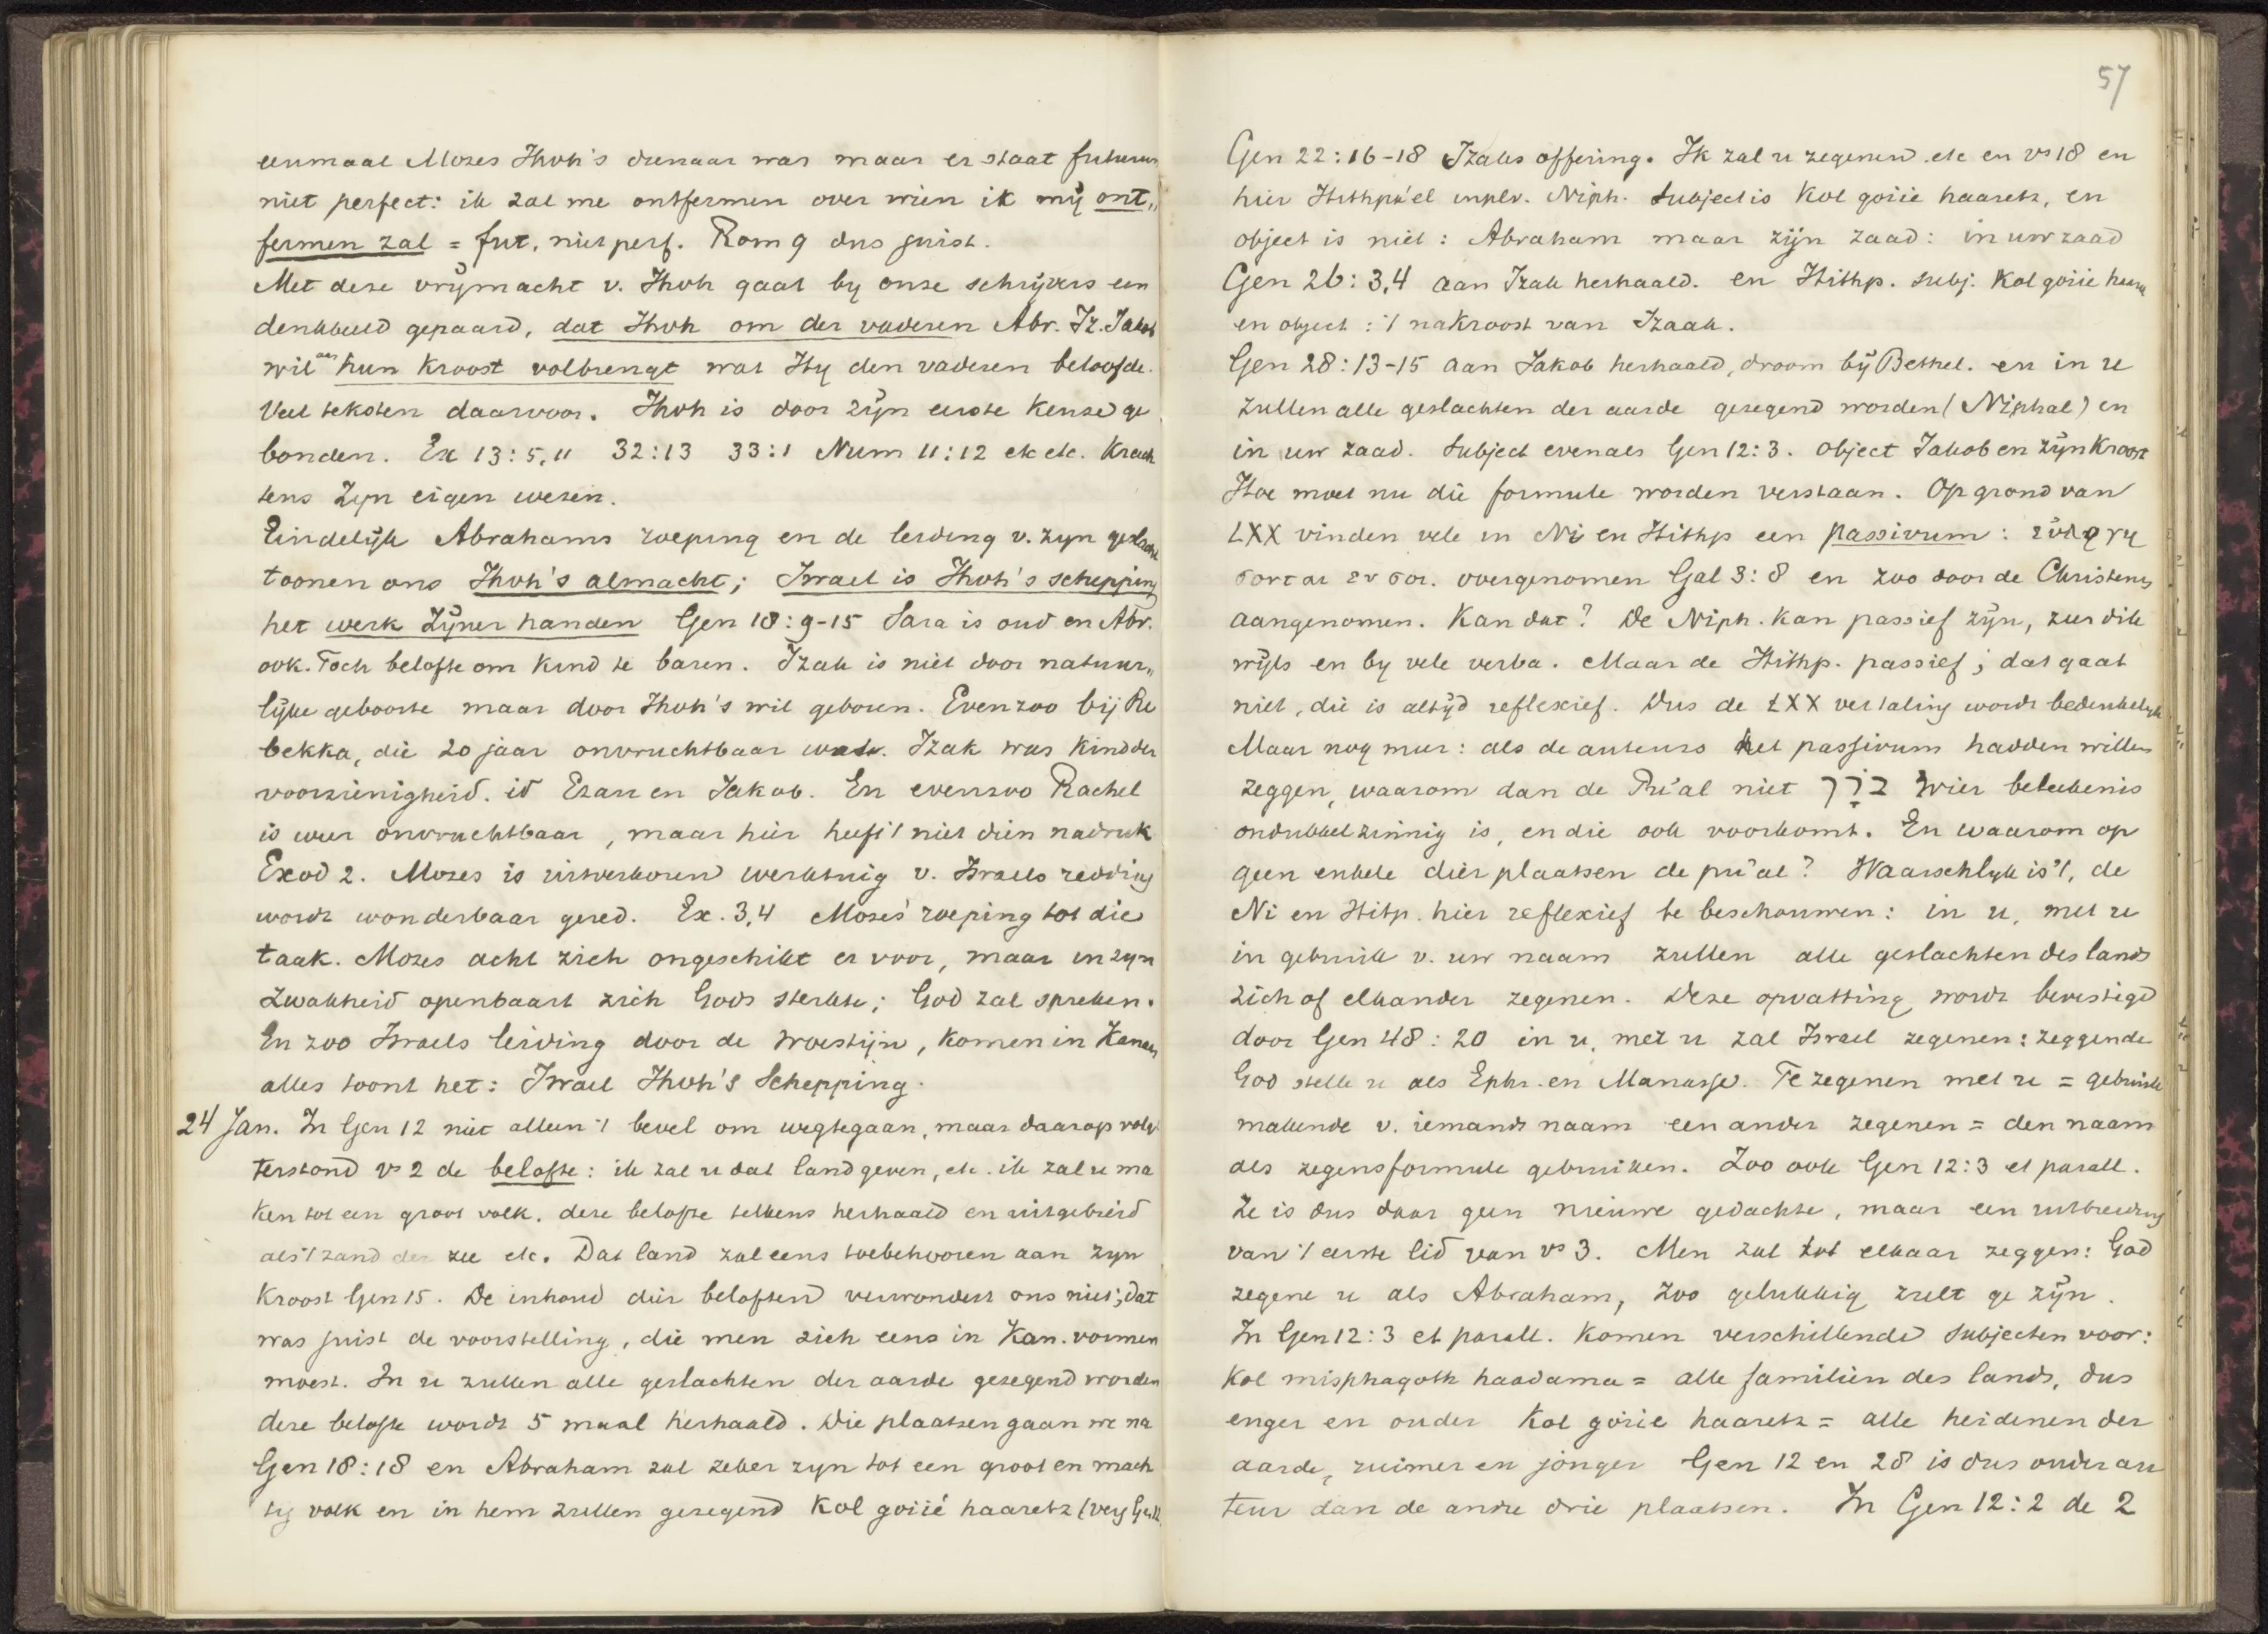 eenmaal Mozes Jhvh's dienaar was maar er staat futurum
niet perfect: ik zal me ontfermen over wien ik mij ont„
fermen zal = fut. niet perf. Rom 9 dus juist.
Met deze vrijmacht v. Jhvh gaat by onze schrijvers een
denkbeeld gepaard, dat Jhvh om der vaderen Abr. Iz. Jakob
wil aan hun kroost volbrengt wat Hy den vaderen beloofde.
Veel teksten daarvoor. Jhvh is door zijn eerste keuze ge
bonden. Ex 13:5,11 32:13 33:1 Num 11:12 etc etc. Krach
tens Zyn eigen wezen.
Eindelijk Abrahams roeping en de leiding v. zyn geslacht
toonen ons Jhvh's almacht; Israel is Jhvh's schepping
het werk Zijner handen Gen 18:9-15 Sara is oud en Abr.
ook. Toch belofte om kind te baren. Izak is niet door natuur„
lijke geboorte maar door Jhvh's wil geboren. Evenzoo bij Re
bekka, die 20 jaar onvruchtbaar was. Izak was kind der
voorzienigheid. id Ezau en Jakob. En evenzoo Rachel
is weer onvruchtbaar, maar hier heeft 't niet dien nadruk
Exod 2. Mozes is uitverkoren werktuig v. Israels redding
wordt wonderbaar gered. Ex. 3,4 Mozes' roeping tot die
taak. Mozes acht zich ongeschikt er voor, maar in zyn
zwakheid openbaart zich Gods sterkte; God zal spreken.
En zoo Israels leiding door de woestijn, komen in Kanaan
alles toont het: Israel Jhvh's Schepping.
24 Jan. In Gen 12 niet alleen 't bevel om wegtegaan, maar daarop volgt
terstond vs 2 de belofte: ik zal u dat land geven, etc. ik zal u ma
ken tot een groot volk. deze belofte telkens herhaald en uitgebreid
als 't zand der zee etc. Dat land zal eens toebehooren aan zyn
kroost Gen 15. De inhoud dier beloften verwondert ons niet; dat
was juist de voorstelling, die men zich eens in Kan. vormen
moest. In u zullen alle geslachten der aarde gezegend worden
deze belofte wordt 5 maal herhaald. Die plaatsen gaan we na
Gen 18:18 en Abraham zal zeker zyn tot een groot en mach
tig volk en in hem zullen gezegend kol goiié haaretz (verg
57
Gen 22:16-18 Izaks offering. Ik zal u zegenen etc en vs 18 en
hier Hithpa'el inplv. Niph. Subject is kol goiie haaretz, en
object is niet: Abraham maar zijn zaad: in uw zaad
Gen 26:3,4 aan Izak herhaald. en Hithp. subj. kol goiie haaretz
en object: 't nakroost van Izaak.
Gen 28:13-15 aan Jakob herhaald, droom bij Bethel. en in u
zullen alle geslachten der aarde gezegend worden (Niphal) en
in uw zaad. Subject evenals Gen 12:3. Object Jakob en zijn kroost
Hoe moet nu die formule worden verstaan. Op grond van
LXX vinden vele in Ni en Hithp een passivum: ενλογη
σονται εν σοι. overgenomen Gal 3:8 en zoo door de Christenen
aangenomen. Kan dat? De Niph. kan passief zijn, zeer dik
wijls en by vele verba. Maar de Hithp. passief; dat gaat
niet, die is altijd reflexief. Dus de LXX vertaling wordt bedenkelijk
Maar nog meer: als de auteurs het passivum hadden willen
zeggen, waarom dan de Pu'al niet בֵּרֵךְ wier beteekenis
ondubbelzinnig is, en die ook voorkomt. En waarom op
geen enkele dier plaatsen de pu'al? Waarschlyk is 't, de
Ni en Hitp. hier reflexief te beschouwen: in u, met u
in gebruik v. uw naam zullen alle geslachten des lands
zich of elkander zegenen. Deze opvatting wordt bevestigd
door Gen 48:20 in u, met u zal Israel zegenen: zeggende
God stelle u als Ephr. en Manasse. Te zegenen met u = gebruik
makende v. iemands naam een ander zegenen = den naam
als zegensformule gebruiken. Zoo ook Gen 12:3 et parall.
Ze is dus daar geen nieuwe gedachte, maar een uitbreiding
van 't eerste lid van vs 3. Men zal tot elkaar zeggen: God
zegene u als Abraham, zoo gelukkig zult ge zijn.
In Gen 12:3 et parall. komen verschillende subjecten voor:
kol misphagoth haadama = alle familiën des lands, dus
enger en ouder kol goiie haaretz = alle heidenen der
aarde, ruimer en jonger Gen 12 en 28 is dus ouder au
teur dan de andre drie plaatsen. In Gen 12:2 de 2